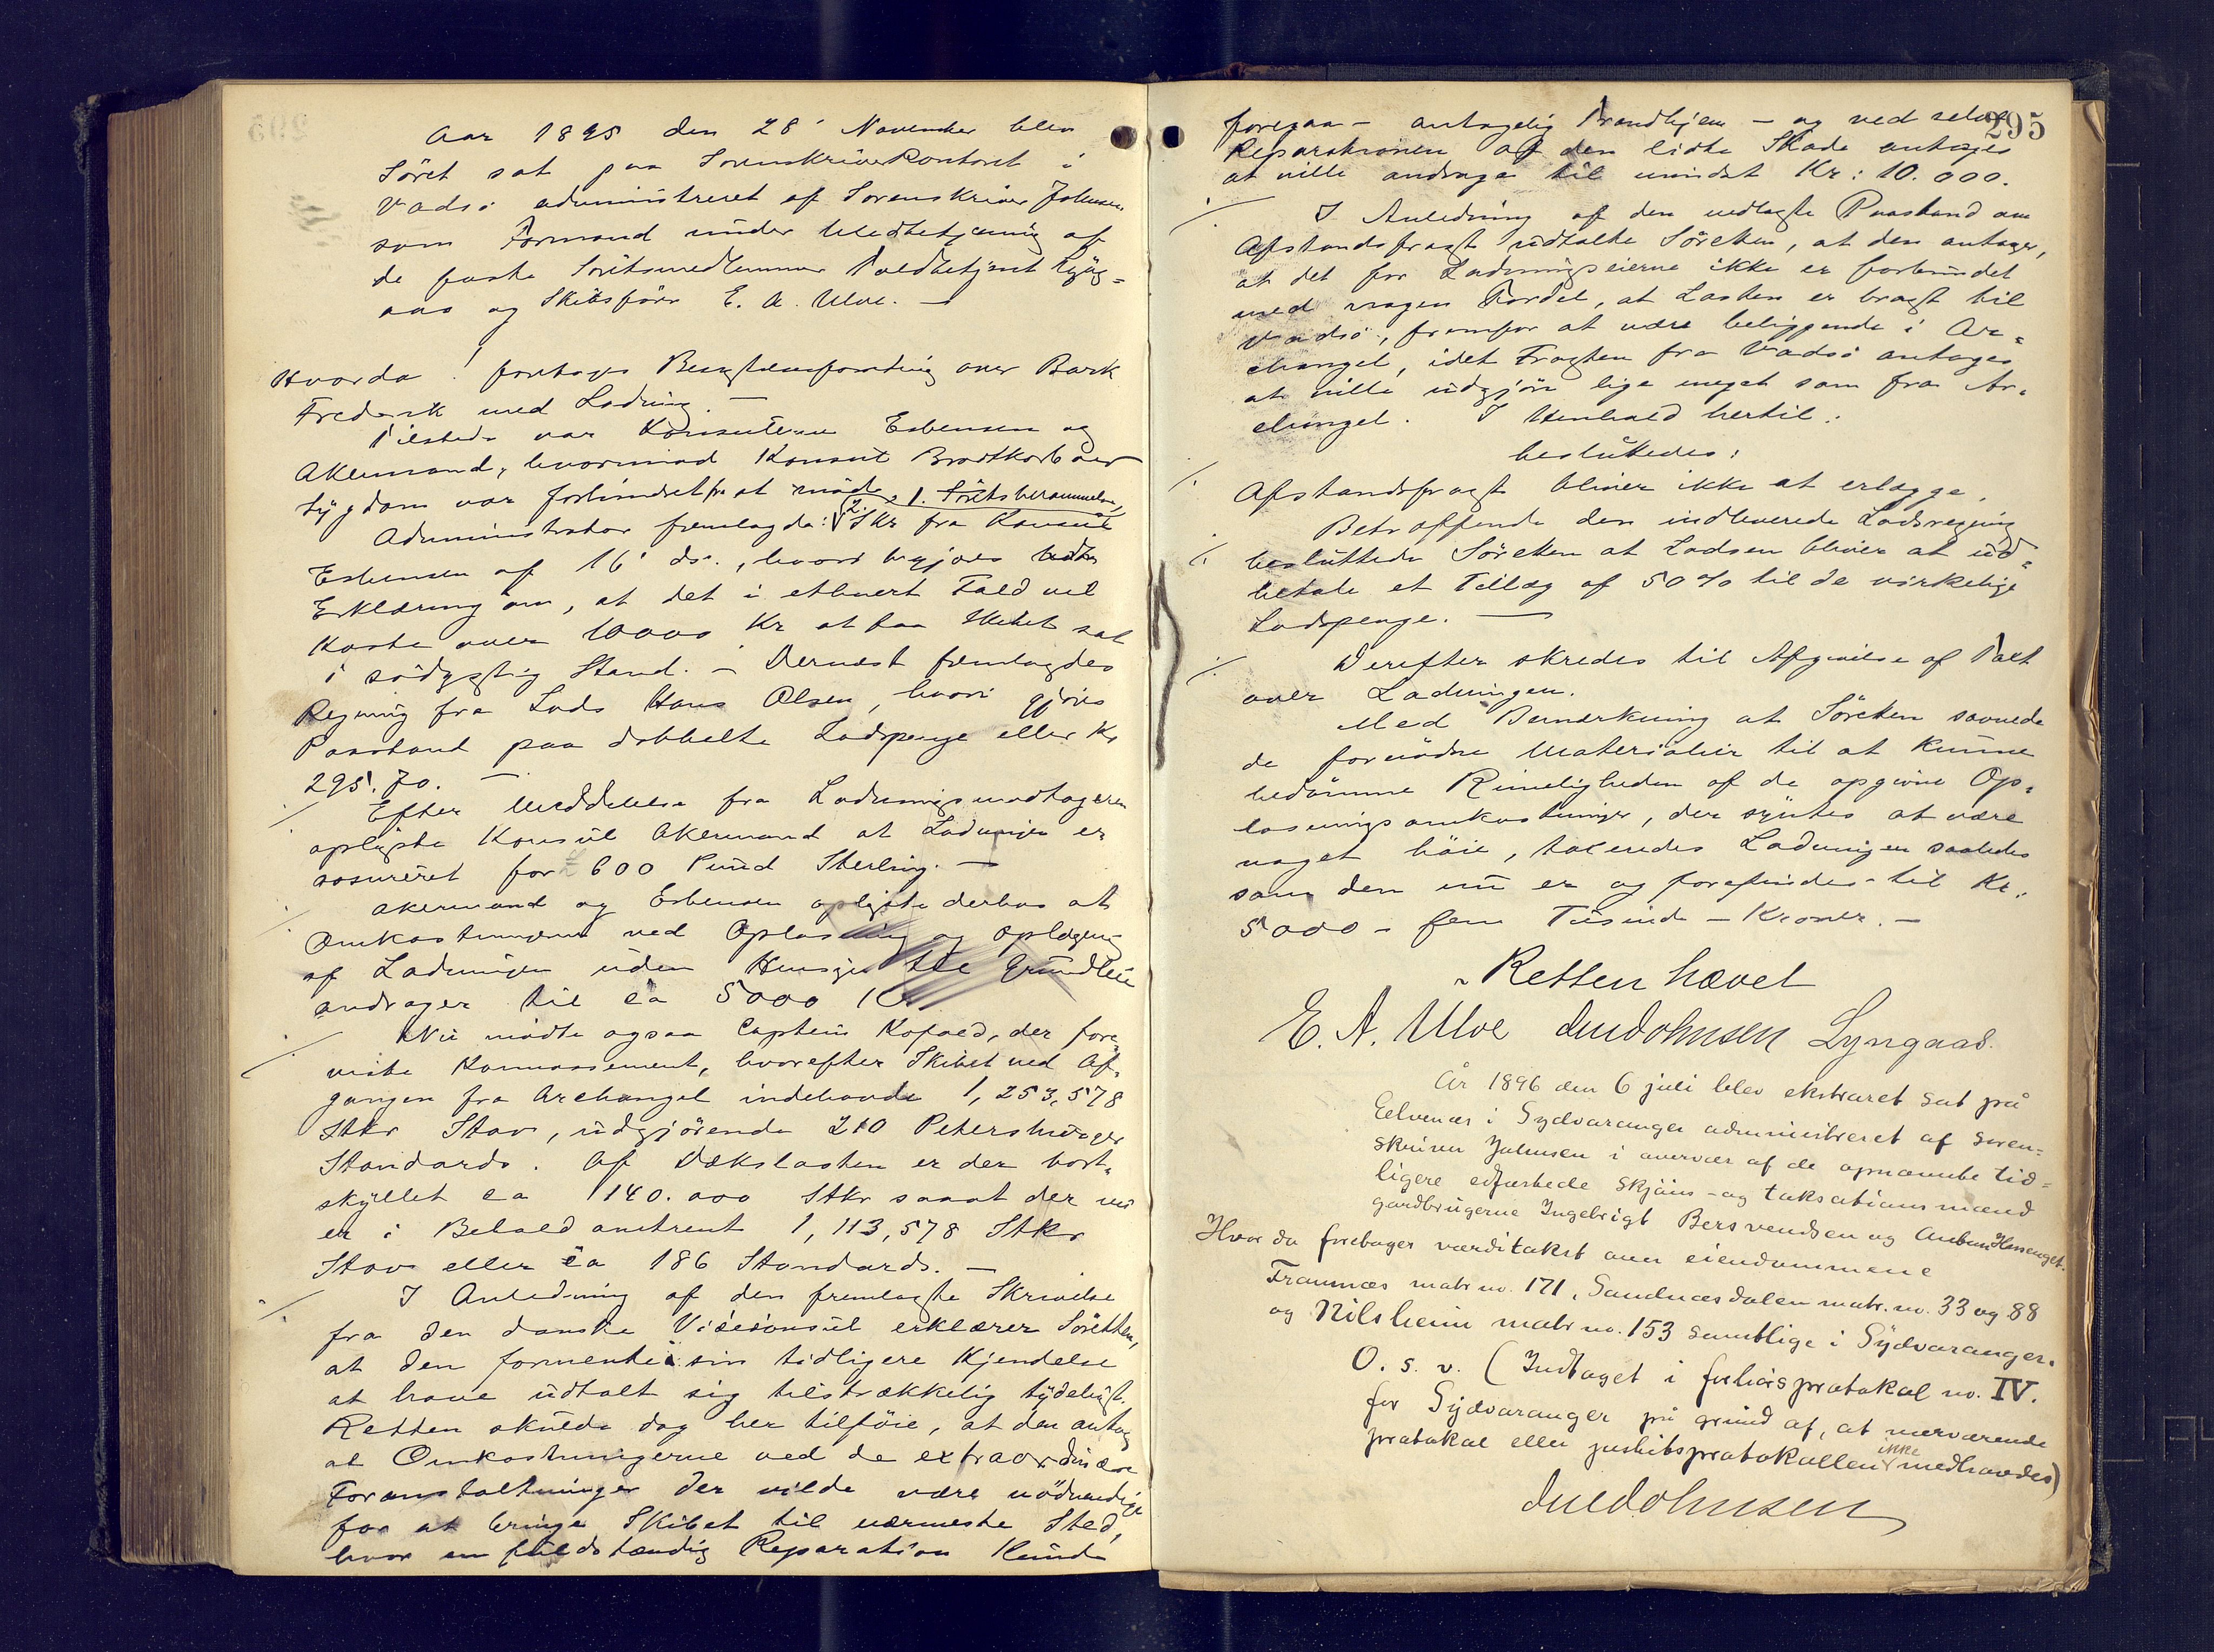 Aar 1895 den 28' November blev
Söret sat paa Sorenskriverkontoret i
Vadsö administreret af Sorenskriver Johnsen
som Formand under Meddetjening af
de faste Söretsmedlemmer Toldbetjent Lyng=
aas og Skibsförer E. A. Ulve. —
Hvorda! foretoges Besigtelsesforretning over Bark
Frederik med Ladning. —
Tilstede var Konsulerne Esbensen og
Akermand, hvorimod Konsul Brodtkorb ved
Sygdom var forhindret fra at möde. 1. Söretsberammelse,
Administrator fremlagde: 2. Skr fra Konsul
Esbensen af 16' ds., hvori begjæres
Erklæring om, at det i ethvert Fald vil
koste over 10000 Kr at faa Skibet sat
i södygtig Stand. — Dernæst fremlagdes
Regning fra Lods Hans Olsen, hvori gjöres
Paastand paa dobbelte Lodspenge eller Kr
295.70. —
Efter Meddelelse fra Ladningsmodtageren
oplyste Konsul Akermand at Ladningen er
assureret for £ 600 Pund Sterling. —
Akermand og Esbensen oplyste derhos at
Omkostningerne ved Oplosning og Oplægning
af Ladningen uden Hensyn til Grundleie
andrager til ca 5000 Kr
Nu mödte ogsaa Captein Kofoed, der fore,
viste Konnossement, hvorefter Skibet ved Af,
gangen fra Archangel indehavde 1,253,578
Stkr Stav, udgjörende 210 Petersburger
Standards. Af Dækslasten er der bort,
skyllet ca 140.000 Stkr saaat der nu
er i Behold omtrent 1,113,578 Stkr
Stav eller ca 186 Standards. —
I Anledning af den fremlagte Skrivelse
fra den danske Visekonsul erklærer Söretten,
at den formente i sin tidligere Kjendelse
at have udtalt sig tilstrækkelig tydeligt.
Retten skulde dog her tilföie, at den antog
at Omkostningerne ved de extraordinære
Foranstaltninger der vilde være nödvendige
for at bringe Skibet til nærmeste Sted,
hvor en fuldstændig Reparation kunde
295
foregaa — antagelig Trondhjem — og ved selve
Reparationen af den lidte Skade antages
at ville andrage til mindst Kr: 10.000.
I Anledning af den nedlagte Paastand om
Afstandsfragt udtalte Söretten, at den antager,
at det for Ladningseierne ikke er forbundet
med nogen Fordel, at Lasten er bragt til
Vadsö, fremfor at være beliggende i Ar=
changel, idet Fragten fra Vadsö antages
at ville udgjöre lige meget som fra Ar,
changel. I Henhold hertil:
besluttedes:
Afstandsfragt bliver ikke at erlægge.
Betræffende den indleverede Lodsregning
besluttede Söretten at Lodsen bliver at ud=
betale et Tillæg af 50% til de virkelige
Lodspenge. —
Derefter skredes til Afgivelse af Taxt
over Ladningen.
Med Bemærkning at Söretten savnede
de fornödne Materialier til at kunne
bedömme Rimeligheden af de opgivne Op,
losningsomkostninger, der syntes at være
noget höie, taxeredes Ladningen saaledes
som den nu er og forefindes til Kr.
5000 — fem Tusinde — Kroner. —
Retten hævet
E. A. Ulve Johnsen Lyngaas.
År 1896 den 6 juli blev ekstraret sat på
Eelvenæs i Sydvaranger administreret af soren=
skriver Johnsen i overvær af de opnævnte tid=
ligere edfæstede skjöns- og taksationsmænd
gardbrugerne Ingebrigt Bersvendsen og Anton Hessenget.
Hvor da foretages værditakst over eiendommene
Framnæs matr no. 171, Sandnæsdalen matr. no. 33 og 88
og Nilsheim matr no. 153 samtlige i Sydvaranger.
O. s. v. (Indtaget i forliksprotokol no. IV.
for Sydvaranger på grund af, at nærværende
protokol eller justitsprotokollen ikke medhavdes)
Johnsen